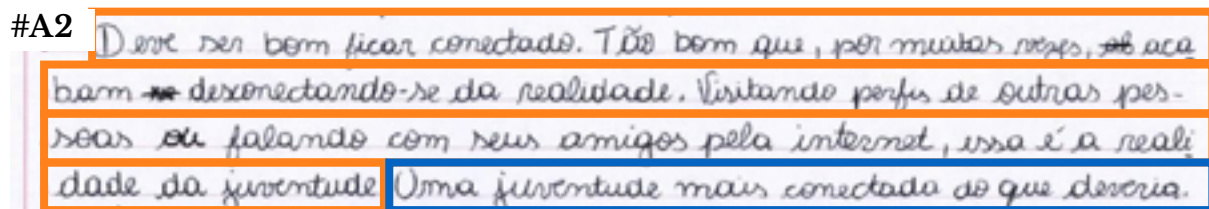 #A2
Deve ser bom ficar conectado. Tão bom que, por muitas vezes, aca
bam desconectando-se da realidade. Visitando perfis de outras pes-
soas ou falando com seus amigos pela internet, essa é a reali
dade da juventude Uma juventude mais conectada do que deveria.